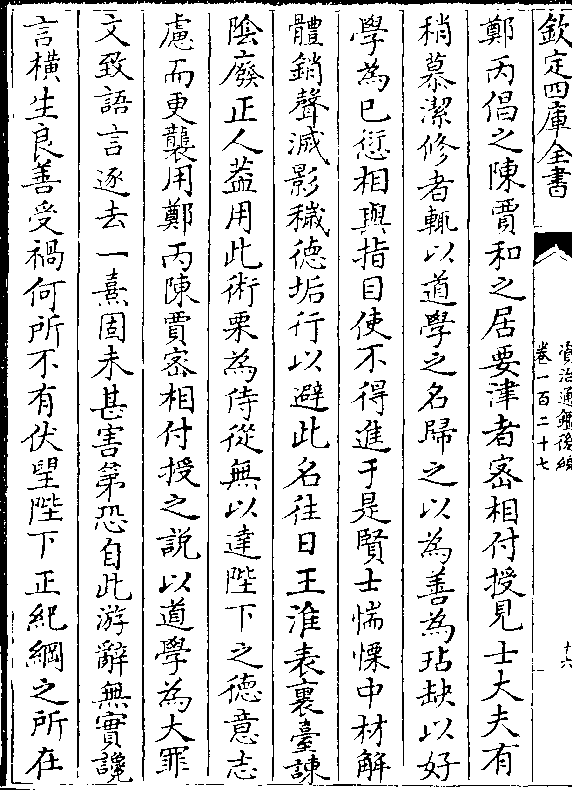 欽定四庫全書
資治通鑑後編
卷一百二十七
十六
鄭丙倡之陳賈和之居要津者宻相付授見士大夫有
稍慕潔修者輒以道學之名歸之以為善為玷缺以好
學為已愆相與指目使不得進于是賢士惴慄中材解
體銷聲滅影穢德垢行以避此名往日王淮表裏臺諫
陰廢正人葢用此術栗為侍從無以達陛下之德意志
慮而更襲用鄭丙陳賈宻相付授之説以道學為大罪
文致語言逐去一熹固未甚害第恐自此游辭無實讒
言橫生良善受禍何所不有伏望陛下正紀綱之所在